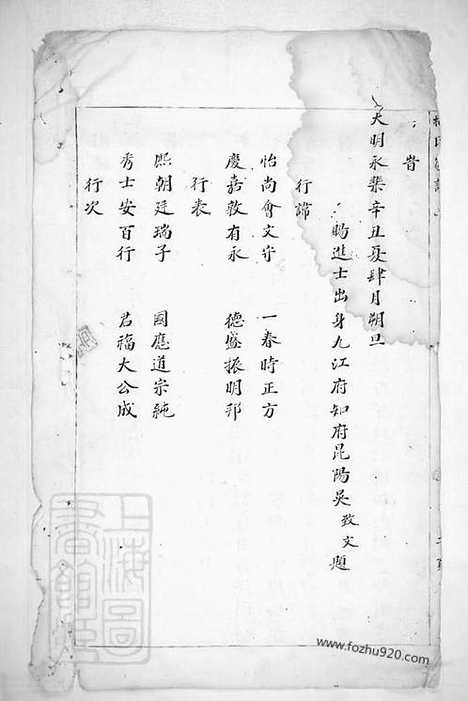 昔
大明永樂辛丑夏肆月朔旦
賜進士出身九江府知府昆陽吳致文題
行諱
怡尚會文守 一春時正方
慶嘉敦有永 德盛振明邦
行表
熙朝廷瑞子 國應道宗純
秀士安百行 君福大公成
行次
上海圖書館藏
www.fozhu920.com